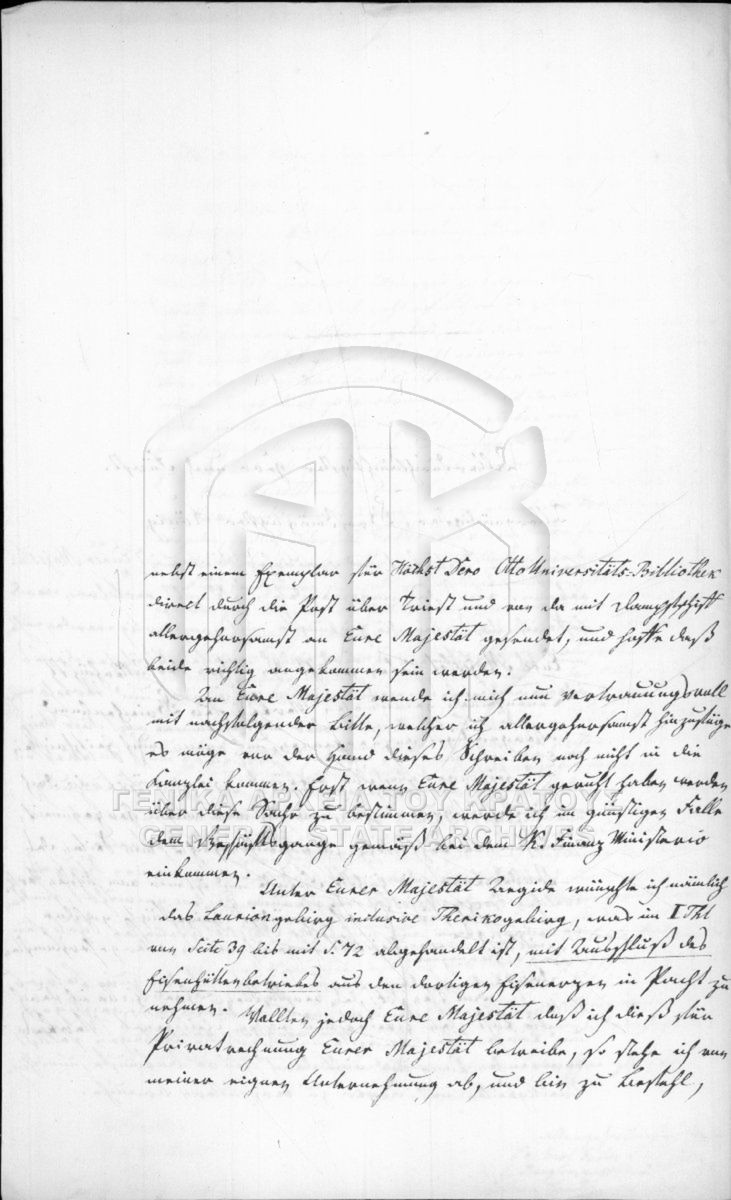 nebst einem Exemplar für Höchst Dero Otto Universitäts-Bibliothek
direct durch die Post über Triest und von da mit Dampfschiff
allergehorsamst an Eure Majestät gesendet, und hoffe daß
beide richtig angekommen sein werden.
An Eure Majestät wende ich mich nun vertrauungsvoll
mit nachfolgender Bitte, welcher ich allergehorsamst hinzufüge
es möge vor der Hand dieses Schreiben noch nicht in die
Kanzlei kommen. Erst wenn Eure Majestät geruht haben werden
über diese Sache zu bestimmen, werde ich im günstigen Falle
dem Geschäftsgange gemäß bei dem K. Finanz Ministerio
einkommen.
ΓΕΝΙΚΑ ΑΡΧΕΙΑ ΤΟΥ ΚΡΑΤΟΥΣ
GENERAL STATE ARCHIVES
Unter Eurer Majestät Aegide wünschte ich nämlich
das Lauriongebirg inclusive Therikogebirg, was im I Thl
von Seite 39 bis mit S. 72 abgehandelt ist, mit Ausschluß des
Eisenhüttenbetriebes aus den dortigen Eisenerzen in Pacht zu
nehmen. Wollten jedoch Eure Majestät daß ich dieß für
Privatrechnung Eurer Majestät betreibe, so stehe ich von
meiner eignen Unternehmung ab, und bin zu Befehl,